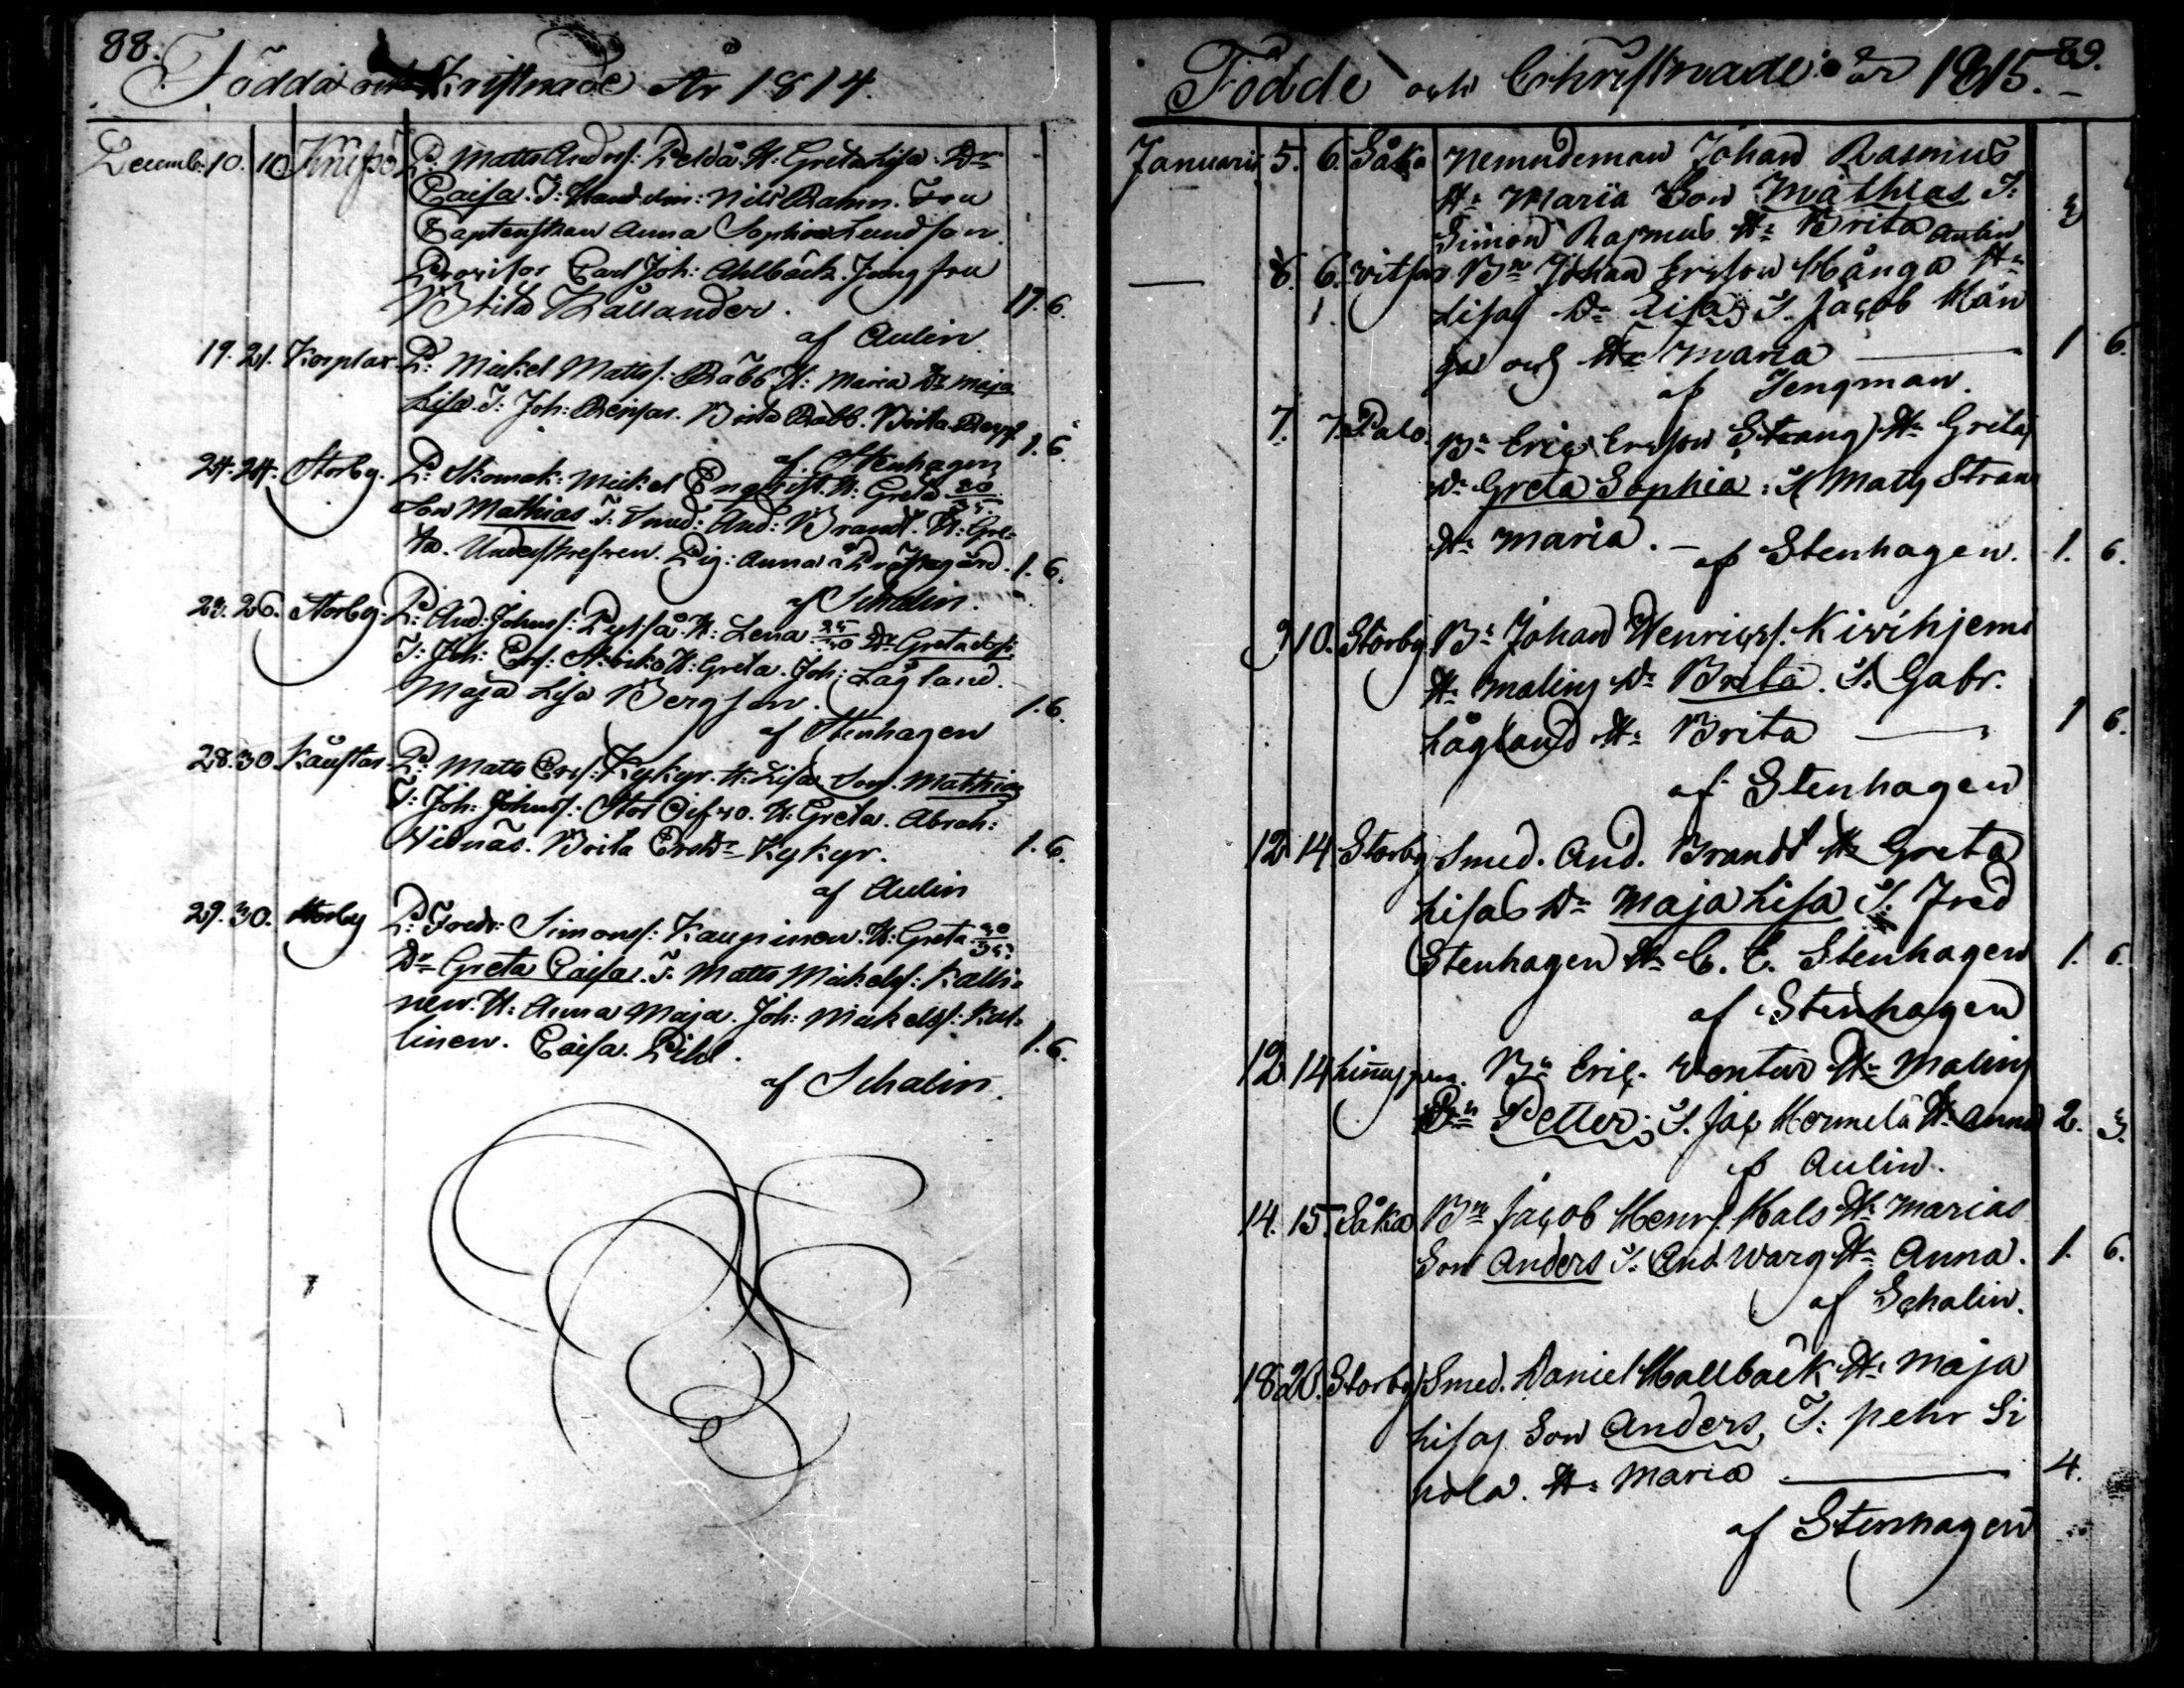 88.
Födda och Kristnade År 1814.
Decemb: 10. 10 B: Matts Anderss: Peldå H: Greta Lisa. Dr
Caisa. T: Handelm: Nils Rahm. Fru
Captenskan Anna Sophia Lundson
Provisor Carl Joh: Ahlbäck. Jungfru
Brita Kållander. 17. 6.
af Aulin
19. 21. Korplax. B: Mickel Mattss: Räbb H: Maria Dr Maja
Lisa. T: Joh: Brita Räbb. Brita 1. 6
af Stenhagen
24. 24. Storby. B: Skomak: Mickel Engqvist. H: Greta
Son Mathias T: Smed: And: Brandt. H: Gre-
ta. Pig: Anna å Prästegård. 1. 6.
af Schalin.
23. 26. Storby. B: And: Johnss: H: Lena Dr Greta
T: Joh: Ers: H: Greta. Joh: Lågland.
Maja Lisa Bergsen. 1. 6.
af Stenhagen
28. 30. Kaustar B: Matts Ers: Kykyr. H: Lisa. Son. Mathias
T: Joh: Johnss: Stor H: Greta. Abrah:
Wisnäs. Brita Ersdr Kykyr. 1. 6.
af Aulin
29. 30. Storby B: Fredr: Simonss: Kaupinen. H: Greta
Dr Greta Caisa. T: Matts Mickelss: Kalli-
nen. H: Anna Maja. Joh: Mickelss: Kal-
linen. Caisa. Pihl. 1. 6.
af Schalin.
89.
Födde och Christnade år 1815.
Januarii 5. 6. Såka Nemndeman Johan Rasmus
Hu Maria Son Mathias T:
Simon Rasmus Hu Brita Aulin 3
6. 6. Vitsar Bn Johan Ersson Hånga Hu
Lisa Dr Lisa T. Jacob Hån
ga och Hu Maria 1 6.
af Tengman.
7. 7. Palo. Bn Eric Ersson Strang Hu Greta
Dr Greta Sophia. T. Matts Strang
Hu Maria. af Stenhagen. 1. 6.
9 10. Storby Bn Johan Henricss. Kivihjemi
Hu Malin Dr Brita. T. Gabr.
Lågland Hu Brita 1 6.
af Stenhagen
12 14 Storby Smed. And. Brandt Hu Greta
Lisa Dr Maja Lisa T. Fred
Stenhagen Hu C. E. Stenhagen 1. 6.
af Stenhagen
12 14 Bn Eric Ventus Hu Malin
Petter. T. Jac Hermelä Hu Anna 2. 3.
af Aulin.
14. 15. Såka Bn Jacob Henr. Hals Hu Maria
Son Anders T. And. Warg Hu Anna. 1. 6.
af Schalin.
18 20. Storby Smed. Daniel Hallback Hu Maja
Lisa Son Anders, T: Pehr Si
pola. Hu Maria 4.
af Stenhagen